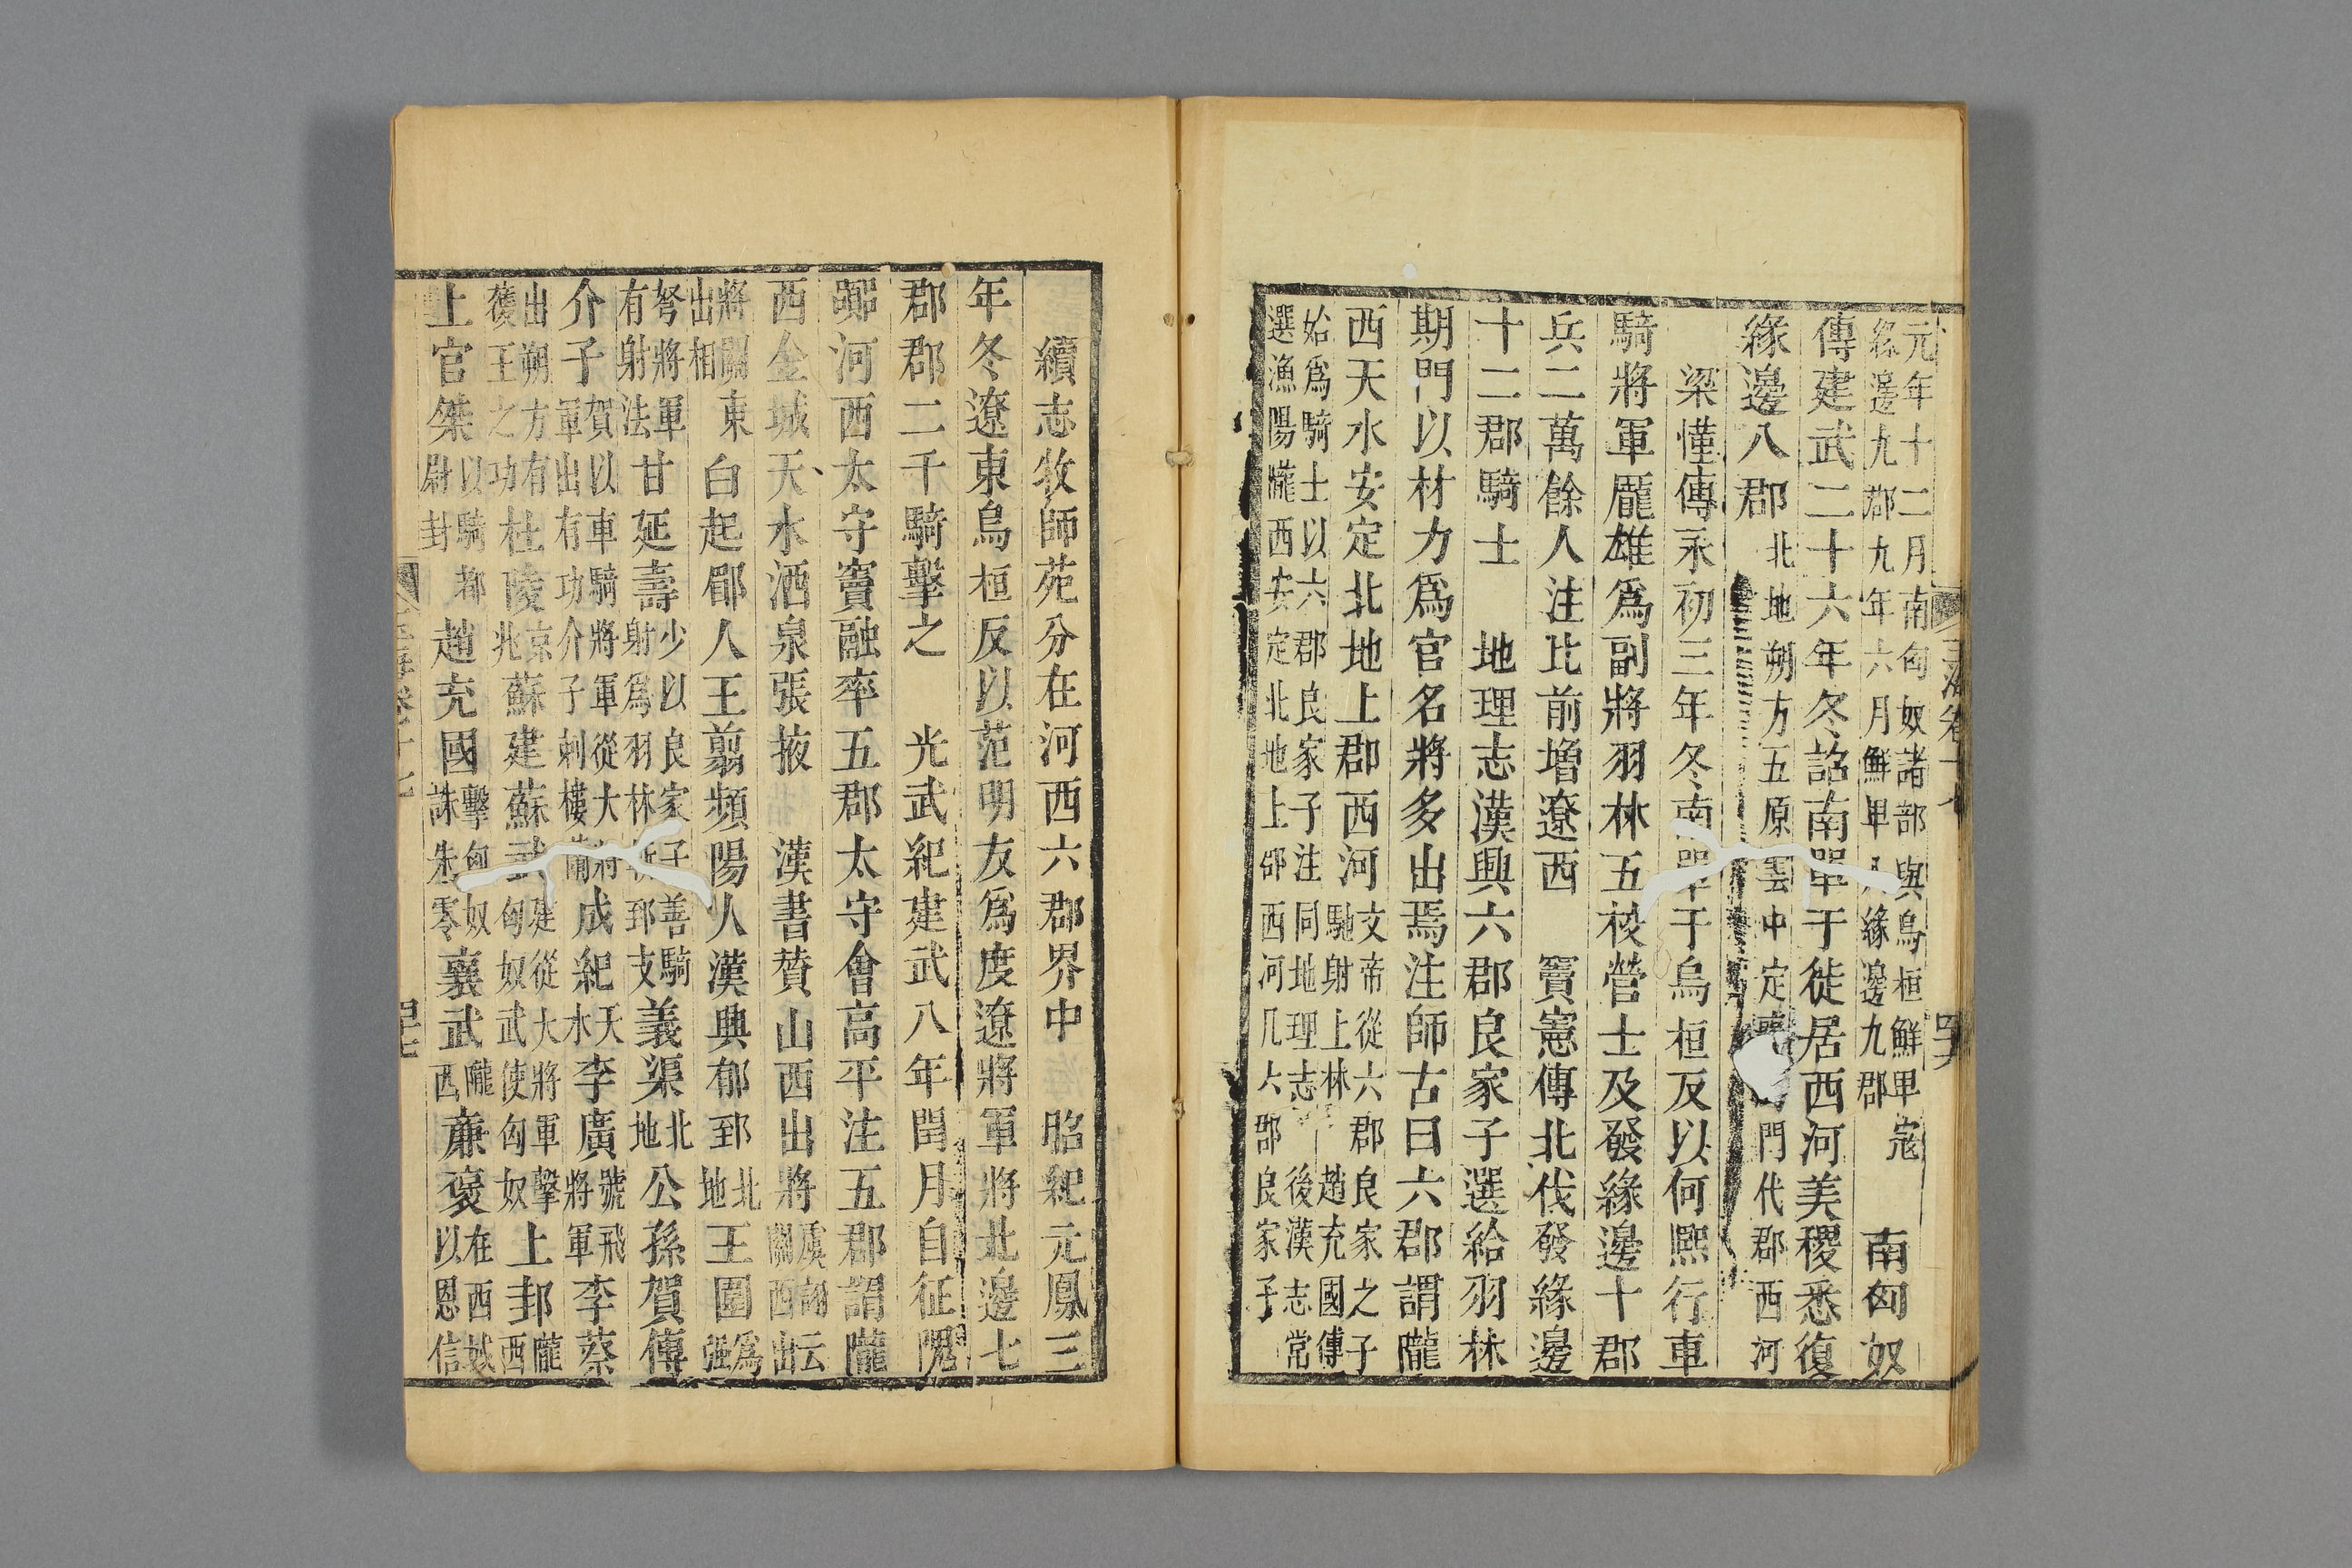 元年十二月南匈奴諸部與烏桓鮮卑寇
緣邊九郡九年六月鮮卑入緣邊九郡
南匈奴
傳建武二十六年冬詔南單于徙居西河美稷悉復
緣邊八郡
北地朔方五原雲中定
門代郡西河
梁慬傳永初三年冬南單于烏桓反以何熙行車
騎將軍龐雄為副將羽林五校營士及發緣邊十郡
兵二萬餘人注比前增遼西 竇憲傳北伐發緣邊
十二郡騎士 地理志漢興六郡良家子選給羽林
期門以材力為官名將多出焉注師古曰六郡謂隴
西天水安定北地上郡西河
文帝從六郡良家之子
馳射上林 趙充國傳
始為騎士以六郡良家子注同地理志 後漢志常
選漁陽隴西安定北地上郡西河凡六郡良家子
續志牧師苑分在河西六郡界中 昭紀元鳳三
年冬遼東烏桓反以范明友為度遼將軍將北邊七
郡郡二千騎擊之 光武紀建武八年閏月自征隗
囂河西太守竇融率五郡太守會高平注五郡謂隴
西金城天水酒泉張掖 漢書贊山西出將
虞詡云
關西出
將關東
出相
白起郿人王翦頻陽人漢興郁郅
北
地
王圍
為
强
弩將軍
有射法
甘延壽
少以良家子善騎
射為羽林 郅支
義渠
北
地
公孫賀傅
介子
賀以車騎將軍從大將
軍出有功介子刺樓蘭
成紀
天
水
李廣
號飛
將軍
李蔡
出朔方有
獲王之功
杜陵
京
兆
蘇建蘇武
建從大將軍擊
匈奴武使匈奴
上邽
隴
西
上官桀
以騎都
尉封
趙充國
擊匈奴
誅朱零
襄武
隴
西
廉褒
在西域
以恩信